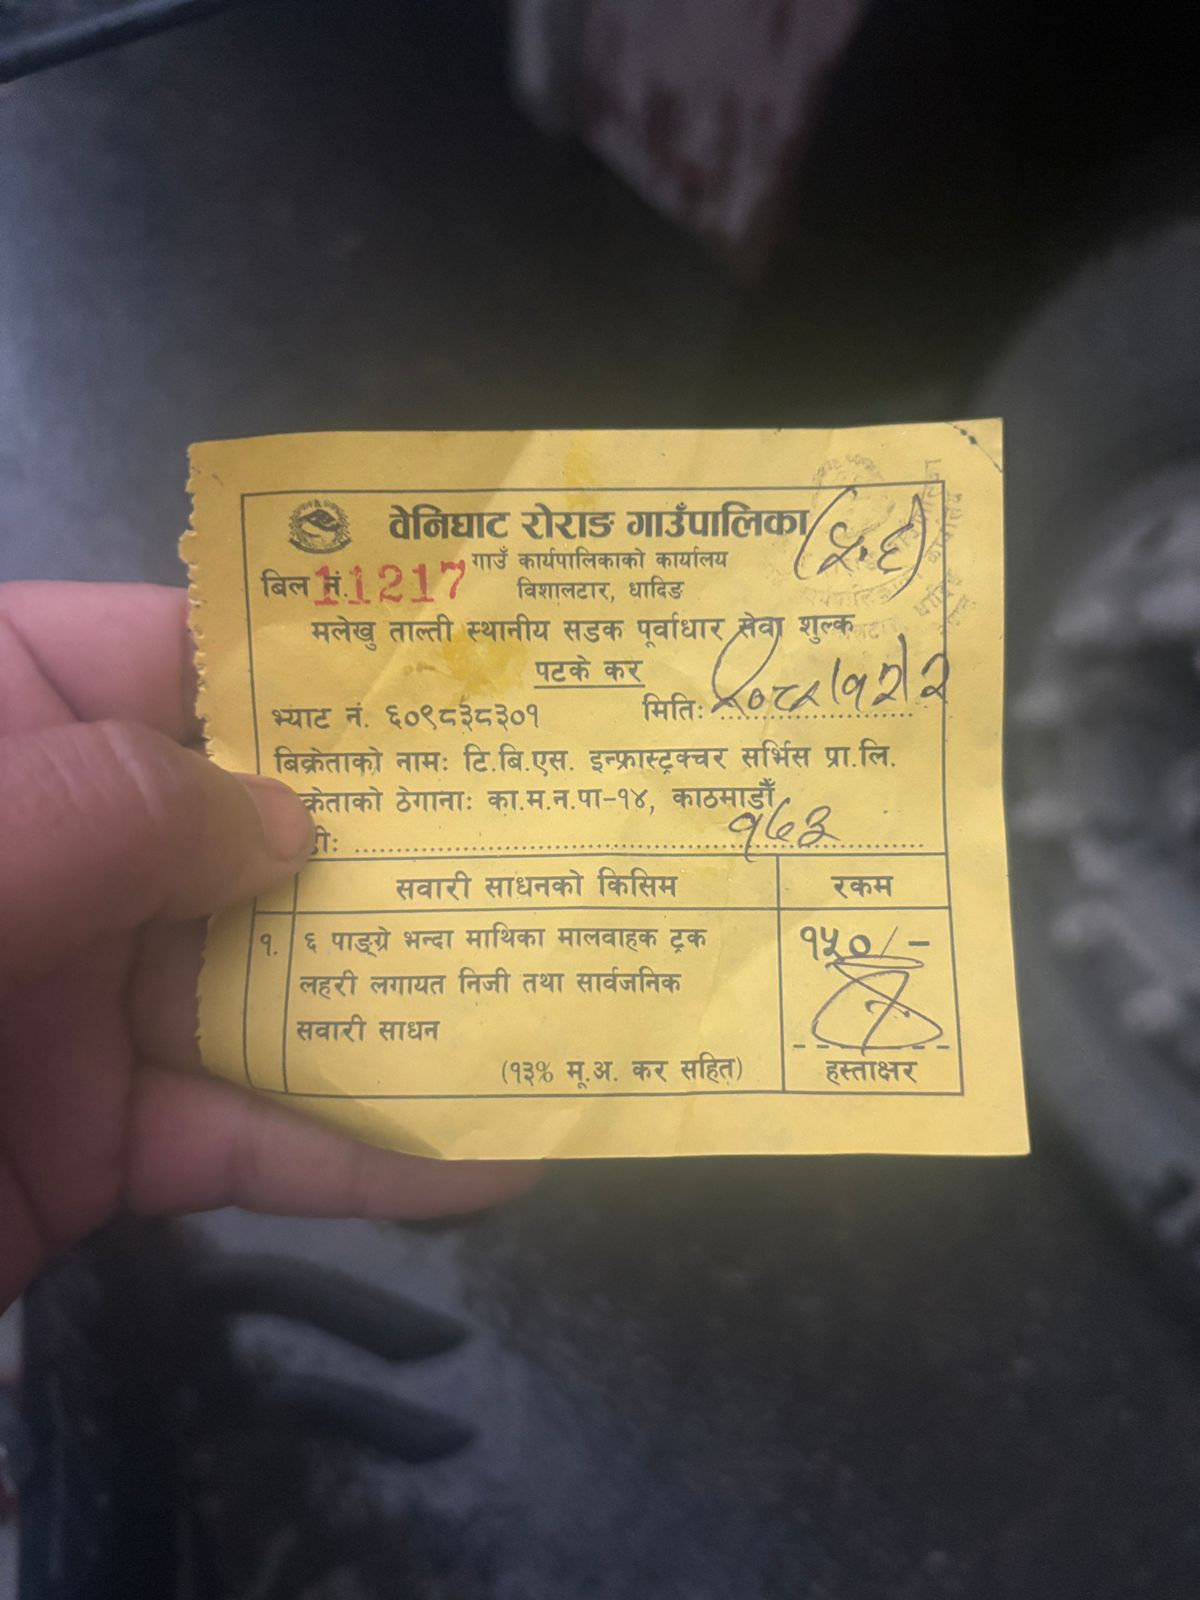 वेनिघाट रोराङ गाउँपालिका
गाउँ कार्यपालिकाको कार्यालय
बिल नं. 11217
विशालटार, धादिङ
मलेखु ताल्ती स्थानीय सडक पूर्वाधार सेवा शुल्क
पटके कर
भ्याट नं. ६०९८३८३०१ मितिः २०८२।१२।२
बिक्रेताको नामः टि.बि.एस. इन्फ्रास्ट्रक्चर सर्भिस प्रा.लि.
क्रेताको ठेगानाः का.म.न.पा-१४, काठमाडौँ
सवारी साधनको किसिम रकम
१. ६ पाङ्ग्रे भन्दा माथिका मालवाहक ट्रक १५०/-
लहरी लगायत निजी तथा सार्वजनिक
सवारी साधन
(१३% मू.अ. कर सहित) हस्ताक्षर